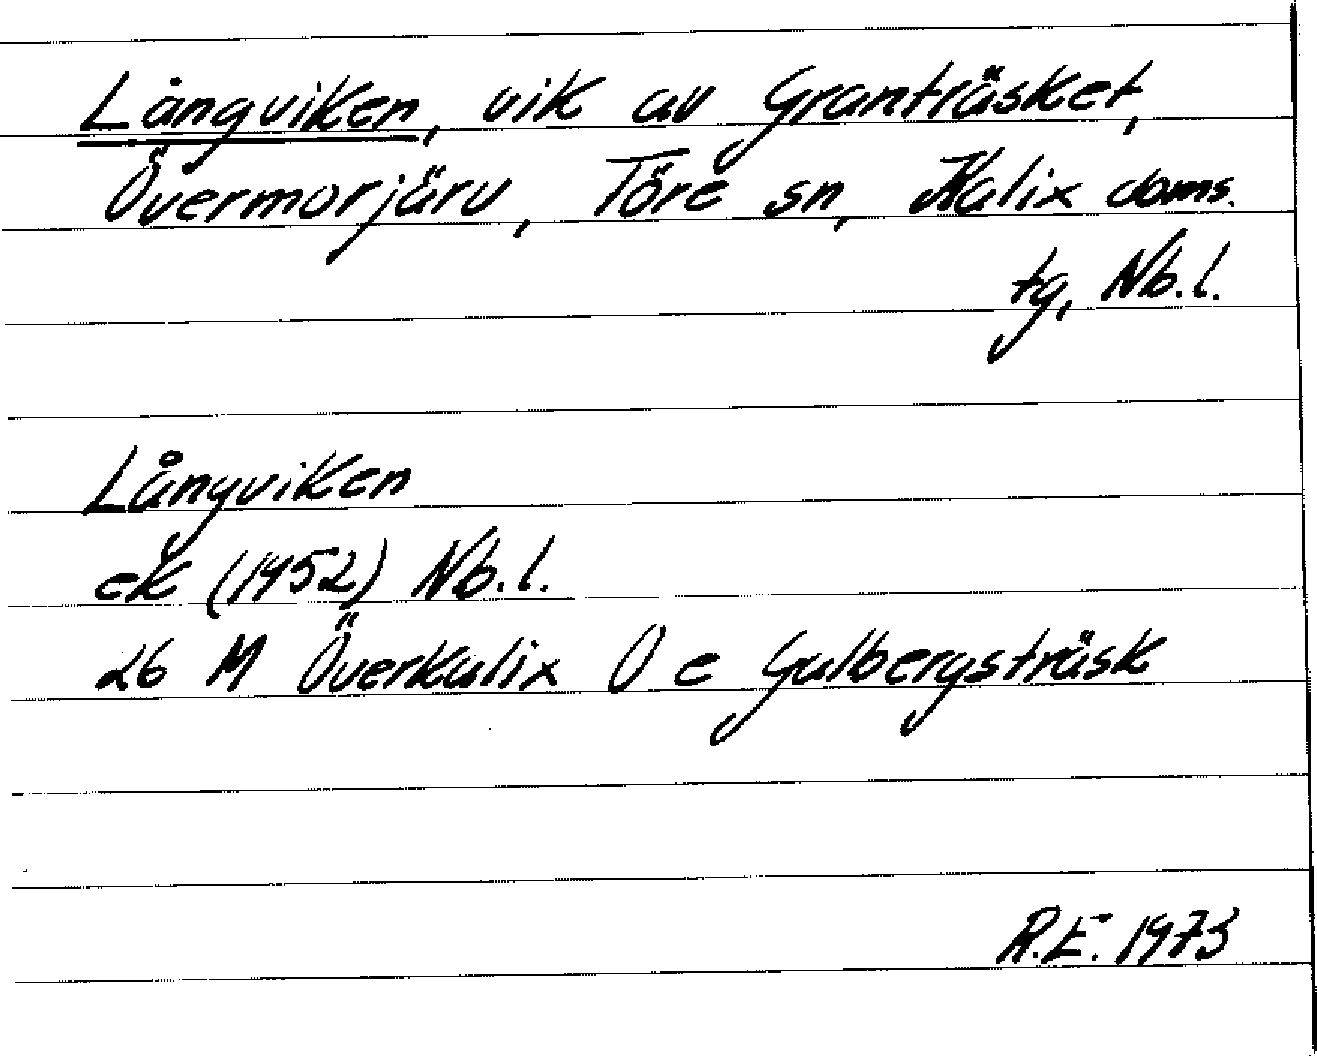 Långviken, vik av Granträsket,
Övermorjärv, Töre sn, Kalix doms.
tg, Nb.l.
Långviken
ek (1952) Nb.l.
26 M Överkalix Ö e Galbergsträsk
R.E. 1973